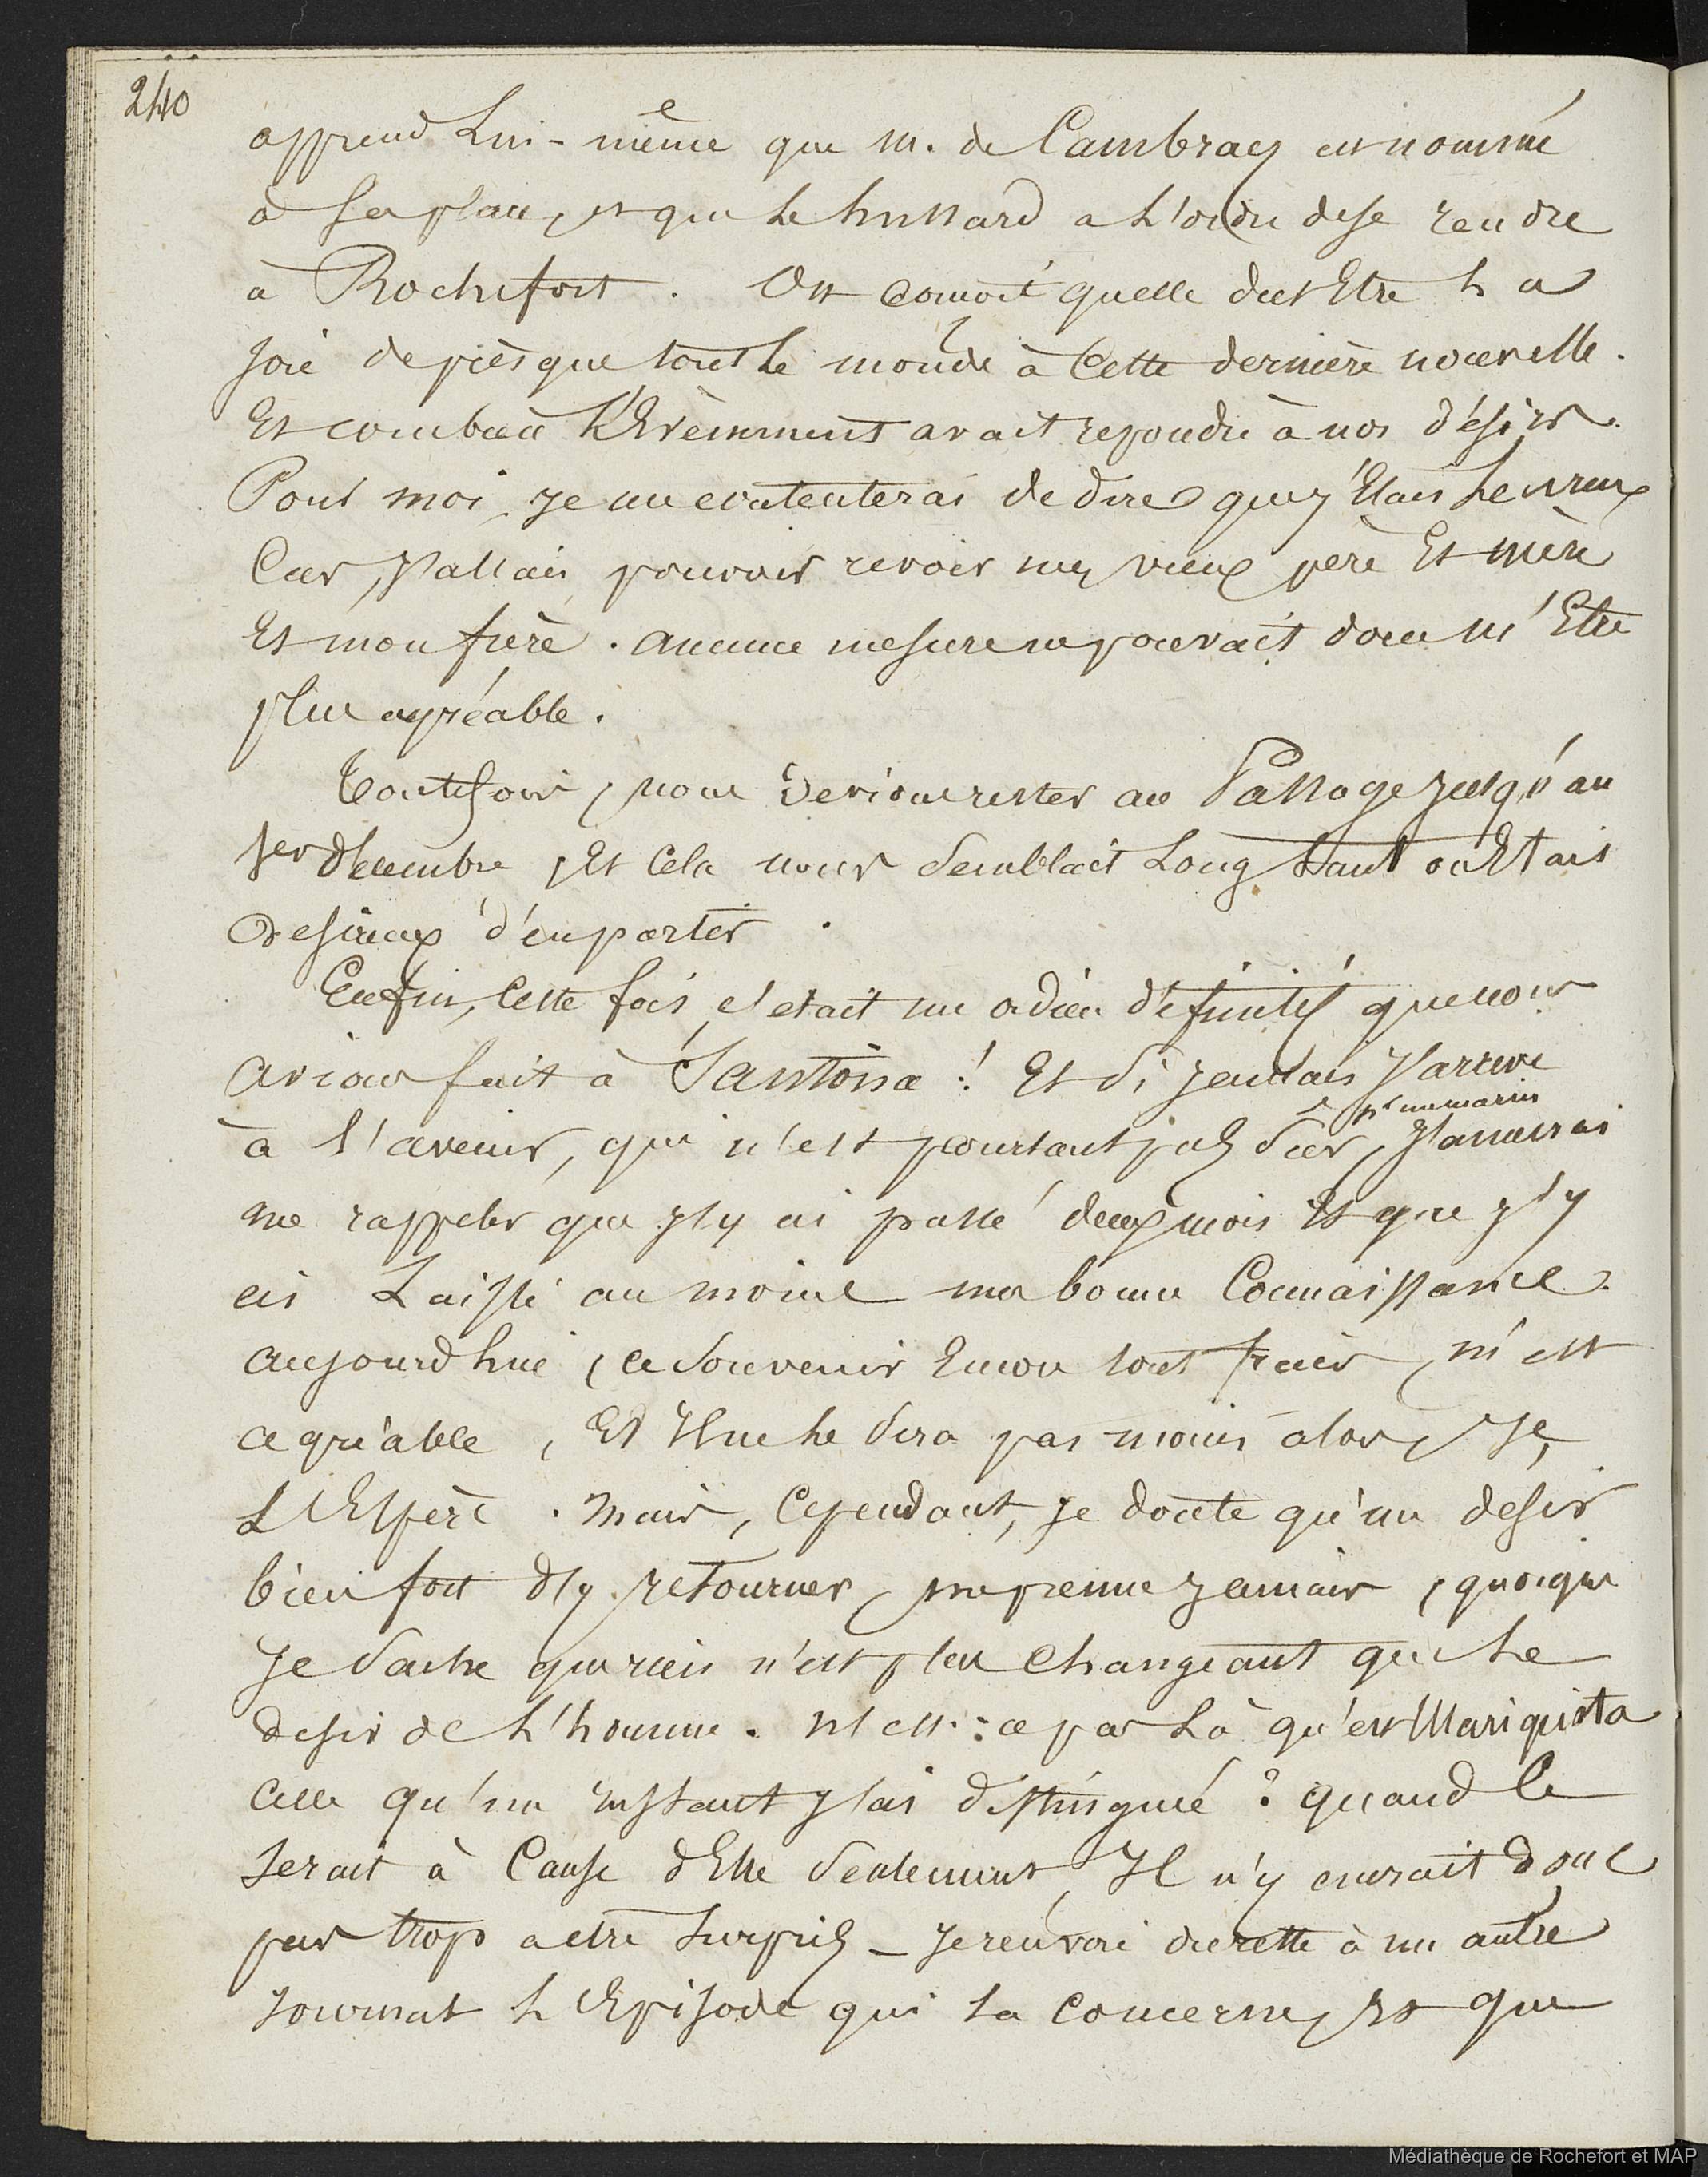 240
apprend Lui-même que m. de Cambray est nommé
à sa place, et que Le hussard a L'ordre de se rendre
à Rochefort. On conçoit quelle dut Etre La
joie de présque tout Le monde à Cette dernière nouvelle.
Et combien L'Evènement avait repondu à nos désirs.
Pour moi, je me contenterai de dire que j'Etais heureux
Car j'allais pouvoir revoir mes vieux père Et mère
Et mon frère. aucune mesure ne pouvait donc m'Etre
plus agréable.
Toutefois, nous devions rester au Passage jusqu'au
1er décembre, Et Cela nous semblait Long tant on Etait
desireux d'en partir.
Enfin, Cette fois, c'etait un adieu définitif que nous
avions fait à Santona! Et si jamais j'arrive
pr un marin
à l'avenir, qui n'est pourtant pas sûr, j'aimerai
me rappeler que j'y ai passé deux mois Et que j'y
ai Laissé au moins ma bonne Connaissance.
aujourd'hui, ce souvenir Encore tout frais, m'est
agréable, Et Il ne Le sera pas moins alors, Je
L'Espère. mais, Cependant, je doute qu'un desir
bien fort d'y retourner, me prenne jamais, quoique
Je sache que rien n'est plus Changeant que Le
desir de L'homme. N'est-ce pas Là qu'est Mariquita
celle qu'un instant j'ai distingué? quand Ce
serait à Cause d'Elle seulement, Il n'y aurait donc
pas trop a etre surpris _ Je renvoi du reste à un autre
journal L'Episode qui La concerne, Et que
Médiathèque de Rochefort et MAP